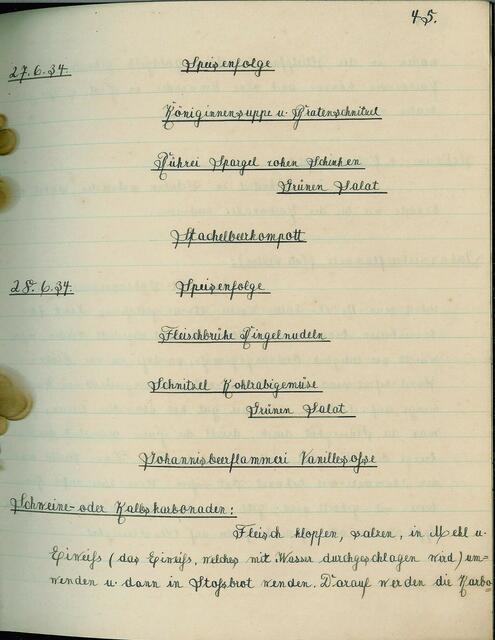 45.
27.6.34. Speisenfolge
Königinnensuppe u. Bratenschnitzel
Rührei Spargel rohen Schinken
Grünen Salat
Stachelbeerkompott
28.6.34. Speisenfolge
Fleischbrühe Ringelnudeln
Schnitzel Kohlrabigemüse
Grünen Salat
Johannisbeerflammeri Vanillesosse
Schweine- oder Kalbskarbonaden:
Fleisch klopfen, salzen, in Mehl u.
Eiweiß (das Eiweiß, welches mit Wasser durchgeschlagen wird) um-
wenden u. dann in Stoßbrot wenden. Darauf werden die Karbo